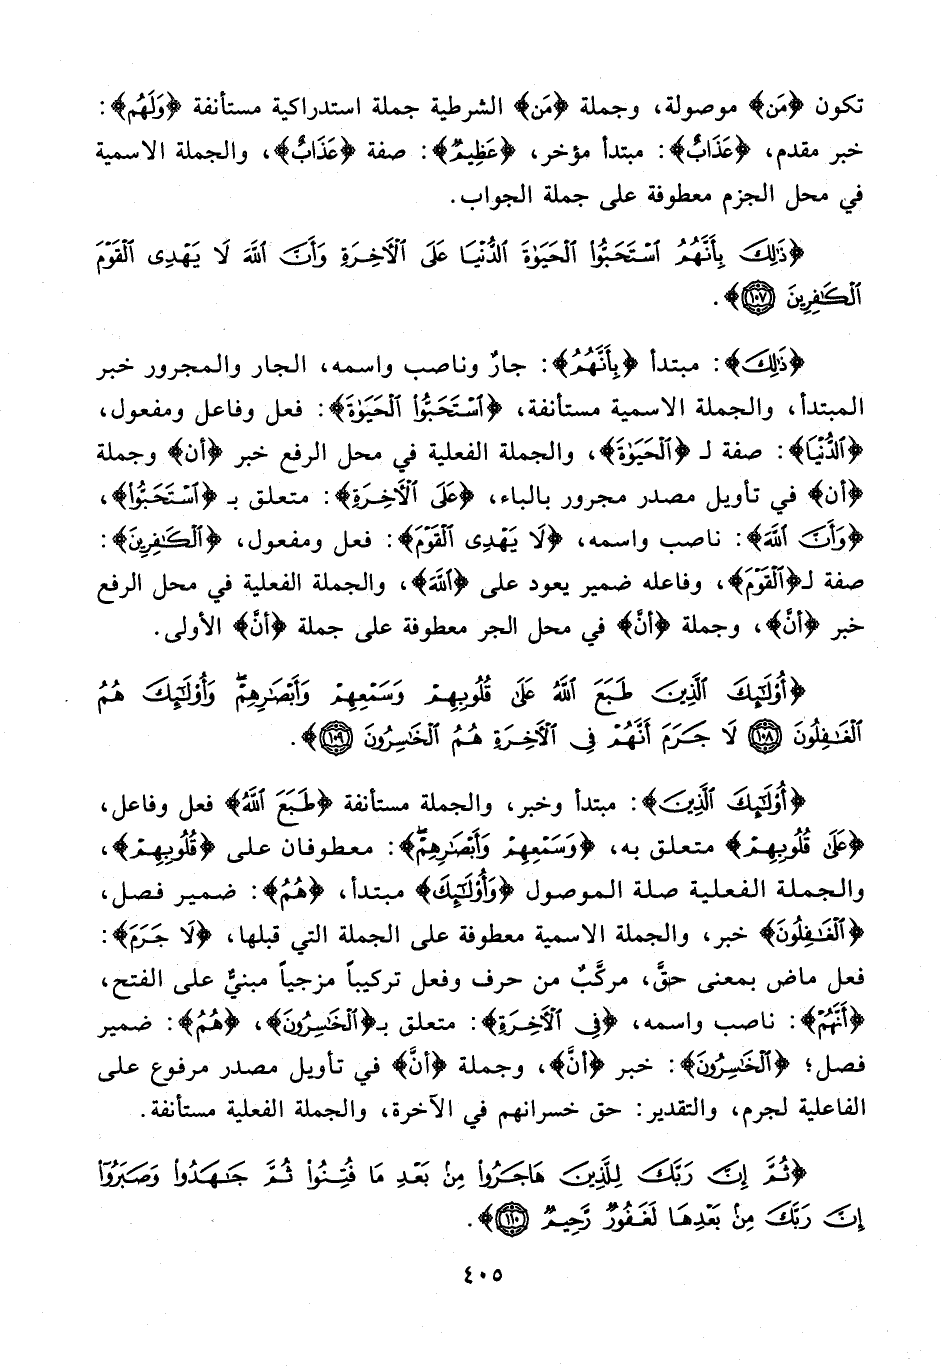 تكون ﴿مَن﴾ موصولة، وجملة ﴿مَن﴾ الشرطية جملة استدراكية مستأنفة ﴿وَلَهُم﴾:
خبر مقدم، ﴿عَذَابٌ﴾: مبتدأ مؤخر، ﴿عَظِيمٌ﴾: صفة ﴿عَذَابٌ﴾، والجملة الاسمية
في محل الجزم معطوفة على جملة الجواب.
﴿ذَٰلِكَ بِأَنَّهُمُ ٱسْتَحَبُّوا۟ ٱلْحَيَوٰةَ ٱلدُّنْيَا عَلَى ٱلْآخِرَةِ وَأَنَّ ٱللَّهَ لَا يَهْدِى ٱلْقَوْمَ
ٱلْكَٰفِرِينَ ١٠٧﴾.
﴿ذَٰلِكَ﴾: مبتدأ ﴿بِأَنَّهُمُ﴾: جارٌ وناصب واسمه، الجار والمجرور خبر
المبتدأ، والجملة الاسمية مستأنفة، ﴿ٱسْتَحَبُّوا۟ ٱلْحَيَوٰةَ﴾: فعل وفاعل ومفعول،
﴿ٱلدُّنْيَا﴾: صفة لـ ﴿ٱلْحَيَوٰةَ﴾، والجملة الفعلية في محل الرفع خبر ﴿أن﴾ وجملة
﴿أن﴾ في تأويل مصدر مجرور بالباء، ﴿عَلَى ٱلْآخِرَةِ﴾: متعلق بـ ﴿ٱسْتَحَبُّوا۟﴾،
﴿وَأَنَّ ٱللَّهَ﴾: ناصب واسمه، ﴿لَا يَهْدِى ٱلْقَوْمَ﴾: فعل ومفعول، ﴿ٱلْكَٰفِرِينَ﴾:
صفة لـ﴿ٱلْقَوْمَ﴾، وفاعله ضمير يعود على ﴿ٱللَّهَ﴾، والجملة الفعلية في محل الرفع
خبر ﴿أنَّ﴾، وجملة ﴿أنَّ﴾ في محل الجر معطوفة على جملة ﴿أنَّ﴾ الأولى.
﴿أُو۟لَٰٓئِكَ ٱلَّذِينَ طَبَعَ ٱللَّهُ عَلَىٰ قُلُوبِهِمْ وَسَمْعِهِمْ وَأَبْصَٰرِهِمْ ۖ وَأُو۟لَٰٓئِكَ هُمُ
ٱلْغَٰفِلُونَ ١٠٨ لَا جَرَمَ أَنَّهُمْ فِى ٱلْآخِرَةِ هُمُ ٱلْخَٰسِرُونَ ١٠٩﴾.
﴿أُو۟لَٰٓئِكَ ٱلَّذِينَ﴾: مبتدأ وخبر، والجملة مستأنفة ﴿طَبَعَ ٱللَّهُ﴾ فعل وفاعل،
﴿عَلَىٰ قُلُوبِهِمْ﴾ متعلق به، ﴿وَسَمْعِهِمْ وَأَبْصَٰرِهِمْ ۖ﴾: معطوفان على ﴿قُلُوبِهِمْ﴾،
والجملة الفعلية صلة الموصول ﴿وَأُو۟لَٰٓئِكَ﴾ مبتدأ، ﴿هُمُ﴾: ضمير فصل،
﴿ٱلْغَٰفِلُونَ﴾ خبر، والجملة الاسمية معطوفة على الجملة التي قبلها، ﴿لَا جَرَمَ﴾:
فعل ماض بمعنى حقَّ، مركَّبٌ من حرف وفعل تركيباً مزجياً مبنيٌّ على الفتح،
﴿أَنَّهُمْ﴾: ناصب واسمه، ﴿فِى ٱلْآخِرَةِ﴾: متعلق بـ﴿ٱلْخَٰسِرُونَ﴾، ﴿هُمُ﴾: ضمير
فصل؛ ﴿ٱلْخَٰسِرُونَ﴾: خبر ﴿أنَّ﴾، وجملة ﴿أنَّ﴾ في تأويل مصدر مرفوع على
الفاعلية لجرم، والتقدير: حق خسرانهم في الآخرة، والجملة الفعلية مستأنفة.
﴿ثُمَّ إِنَّ رَبَّكَ لِلَّذِينَ هَاجَرُوا۟ مِنۢ بَعْدِ مَا فُتِنُوا۟ ثُمَّ جَٰهَدُوا۟ وَصَبَرُوٓا۟
إِنَّ رَبَّكَ مِنۢ بَعْدِهَا لَغَفُورٌ رَّحِيمٌ ١١٠﴾.
٤٠٥